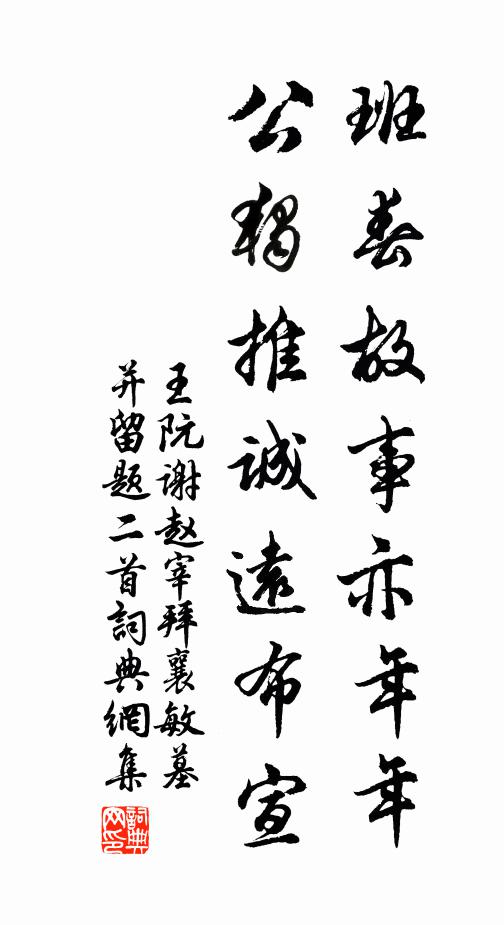 班春故事亦年年
公獨推誠遠布宣
王阮谢赵宰拜襄敏墓
并留题二首詞典網集
詞典
网印